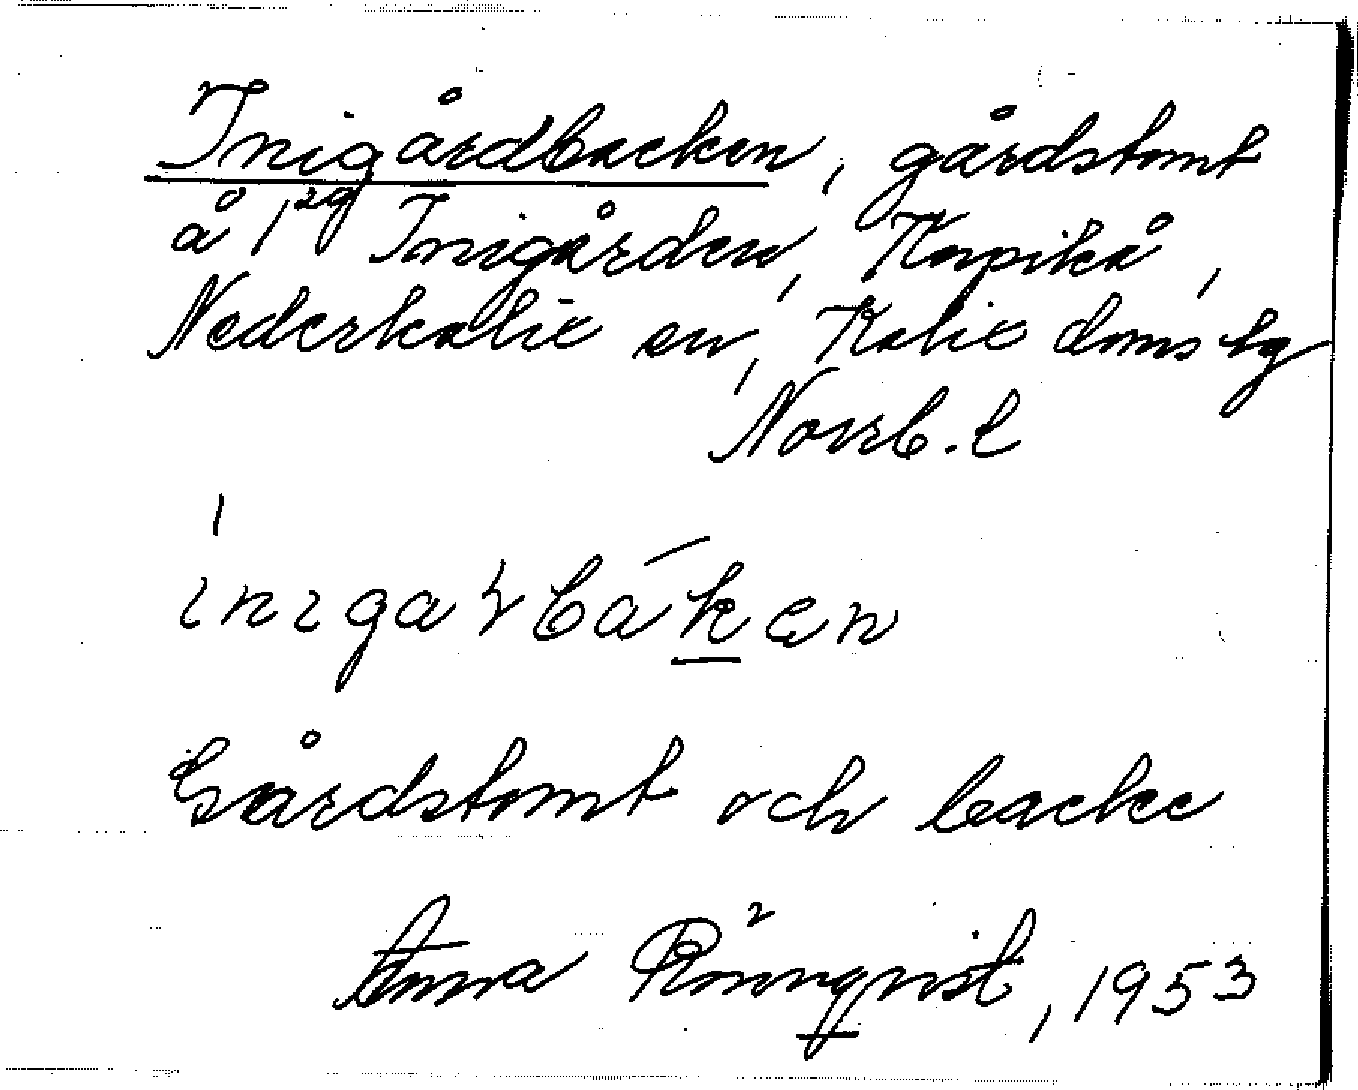 Inigårdbacken, gårdstomt
å 1²⁹ Inigården, Korpikå,
Nederkalix sn, Kalix doms tg
Norrb. l
Gårdstomt och backe
Anna Rönnqvist, 1953